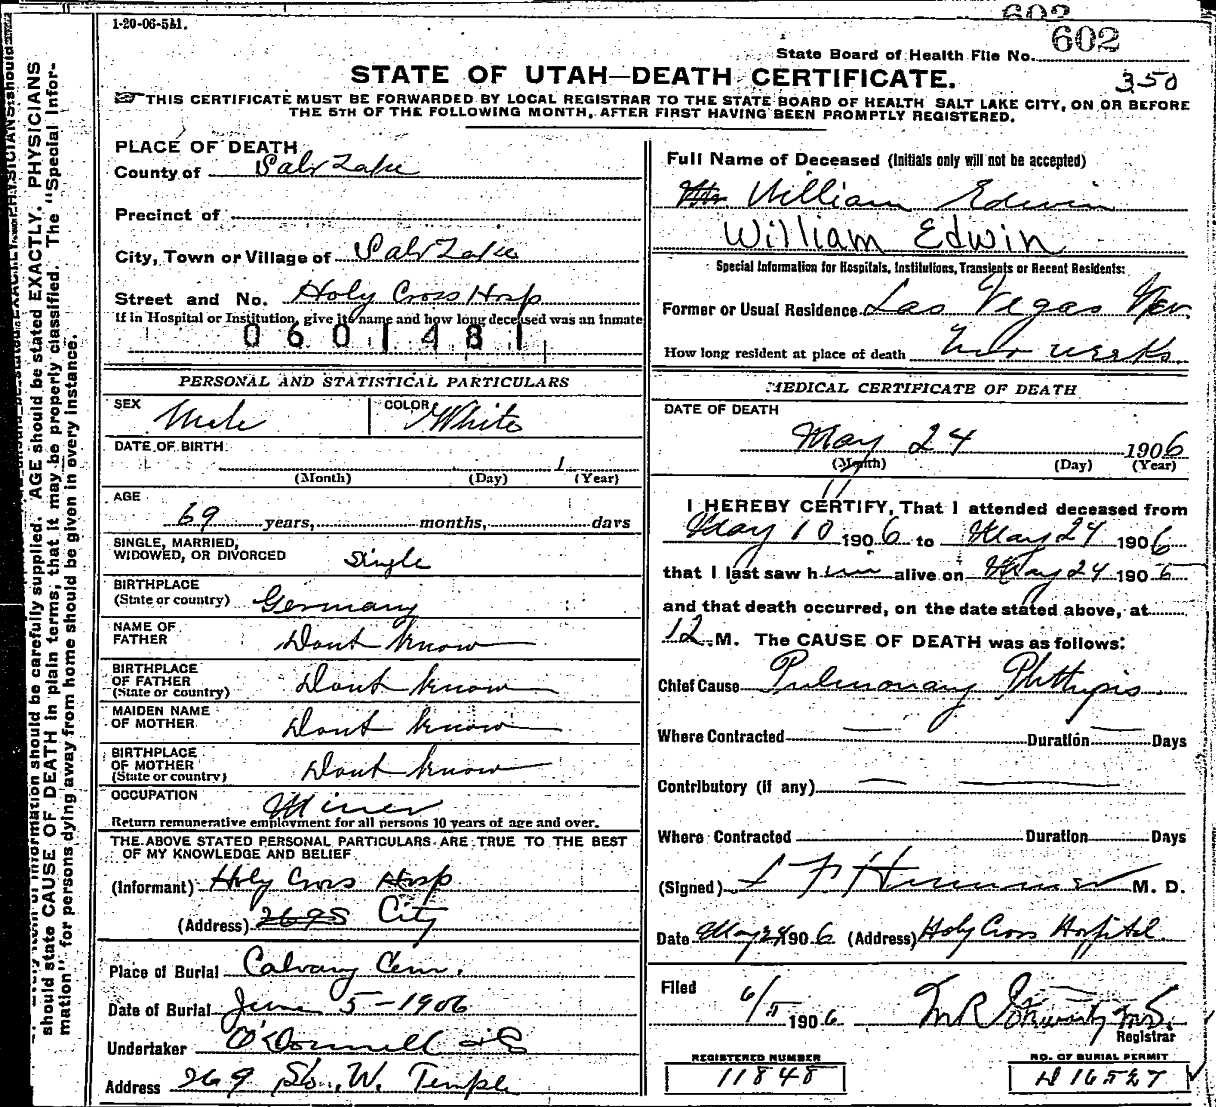 1-20-06-5M.
602
State Board of Health File No. 602
STATE OF UTAH—DEATH CERTIFICATE.
350
THIS CERTIFICATE MUST BE FORWARDED BY LOCAL REGISTRAR TO THE STATE BOARD OF HEALTH SALT LAKE CITY, ON OR BEFORE
THE 5TH OF THE FOLLOWING MONTH, AFTER FIRST HAVING BEEN PROMPTLY REGISTERED.
PLACE OF DEATH
County of Salt Lake
Precinct of
City, Town or Village of Salt Lake
Street and No. Holy Cross Hosp
If in Hospital or Institution, give its name and how long deceased was an inmate
0601481
PERSONAL AND STATISTICAL PARTICULARS
SEX Male COLOR White
DATE OF BIRTH 1
(Month) (Day) (Year)
AGE
69 years, months, days
SINGLE, MARRIED,
WIDOWED, OR DIVORCED Single
BIRTHPLACE
(State or country) Germany
NAME OF
FATHER Dont know
BIRTHPLACE
OF FATHER
(State or country) Dont know
MAIDEN NAME
OF MOTHER Dont know
BIRTHPLACE
OF MOTHER
(State or country) Dont know
OCCUPATION Miner
Return remunerative employment for all persons 10 years of age and over.
THE ABOVE STATED PERSONAL PARTICULARS ARE TRUE TO THE BEST
OF MY KNOWLEDGE AND BELIEF
(Informant) Holy Cross Hosp
(Address) City
Place of Burial Calvary Cem.
Date of Burial June 5-1906
Undertaker O'Donnell
Address 269 So. W. Temple
Full Name of Deceased (Initials only will not be accepted)
William Edwin
William Edwin
Special Information for Hospitals, Institutions, Transients or Recent Residents:
Former or Usual Residence Las Vegas Nev.
How long resident at place of death Two weeks
MEDICAL CERTIFICATE OF DEATH
DATE OF DEATH
May 24 1906
(Month) (Day) (Year)
I HEREBY CERTIFY, That I attended deceased from
May 10 1906 to May 24 1906
that I last saw him alive on May 24 1906
and that death occurred, on the date stated above, at
12 M. The CAUSE OF DEATH was as follows:
Chief Cause Pulmonary Phthysis
Where Contracted — Duration — Days
Contributory (if any) — —
Where Contracted Duration Days
(Signed) M. D.
Date May 24 1906 (Address) Holy Cross Hospital
Filed 6/5 1906
Registrar
REGISTERED NUMBER
11848
NO. OF BURIAL PERMIT
16527
information should be carefully supplied. AGE should be stated EXACTLY. PHYSICIANS
should state CAUSE OF DEATH in plain terms, that it may be properly classified. The "Special Infor-
mation" for persons dying away from home should be given in every instance.